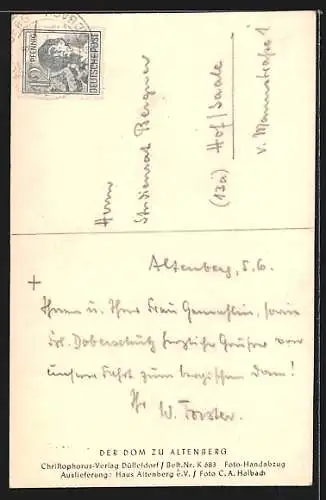 12 PFENNIG
DEUTSCHE POST
Herrn
Studienrat Bergner
(13a) Hof/Saale
v. Mannstraße 1
+
Altenberg, 5.6.
Ihnen u. Ihrer Frau Gemahlin, sowie
Frl. Doberschütz herzliche Grüße von
unserer Fahrt zum bergischen Dom!
Ihr W. Forster.
DER DOM ZU ALTENBERG
Christophorus-Verlag Düsseldorf / Best.Nr. K 683 Foto-Handabzug
Auslieferung: Haus Altenberg e.V. / Foto C. A. Halbach